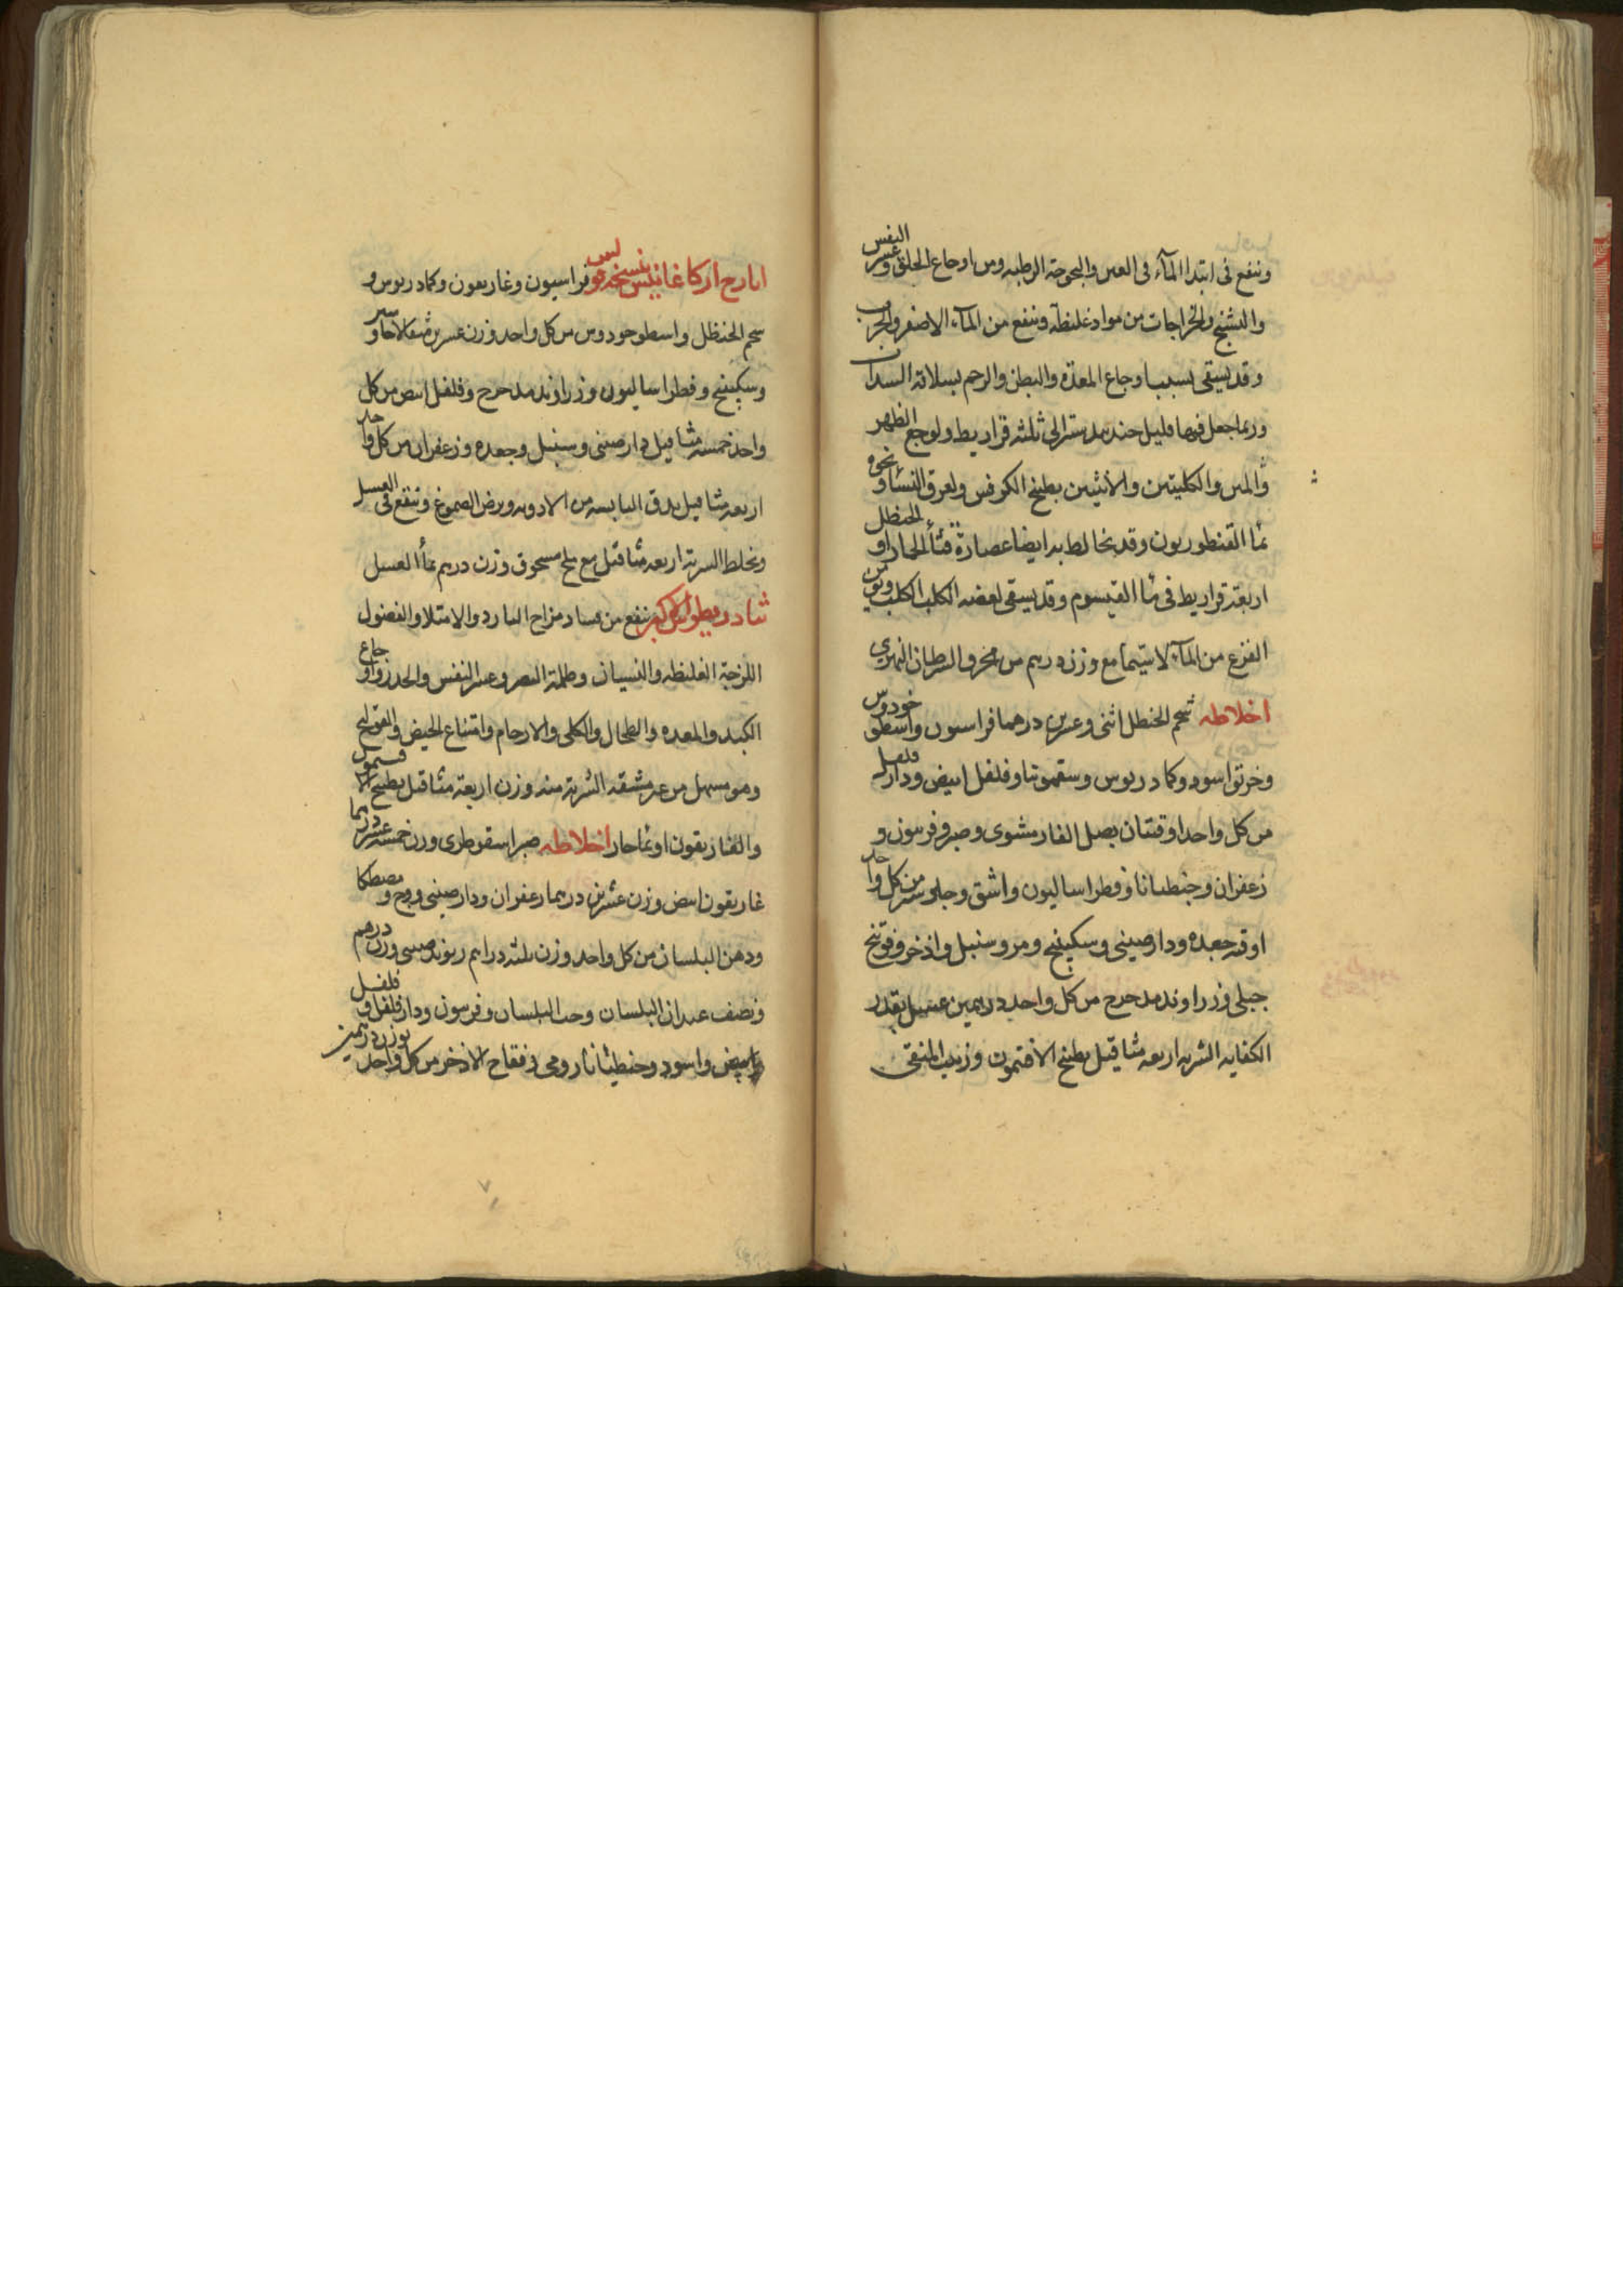 وينفع فى ابتدا المآء فى العين والبحوحة الرطبه ومن اوجاع الحلق وعسر النفس
والتشنج والخراجات من مواد غليظة وينفع من المآء الاصفر والجرب
وقد يستقى بسبب اوجاع المعدة والبطن والرحم بسلاقة السداب
وربما جعل فيها قليل جندبيدستر الى ثلثه قراريط ولوجع الظهر
والمتن والكليتين والانثيين بطبخ الكرفس ولعرق النسا ونحوه
بما القنطوريون وقد يخالط به ايضا عصارة قثأ الحمار او الحنظل
اربعة قراريط فى مأ القيسوم وقد يسقى لعضه الكلب الكلب ومن
الفزع من المآء لا سيما مع وزن درهم من محرق السرطان النهرى
اخلاطه شحم الحنظل اثنى وعشرين درهما فراسيون واسطوخودوس
وخربق اسود وكمادريوس وسقمونيا وفلفل ابيض ودارفلفل
من كل واحد اوقتان بصل الفار مشوى وصبر وفربيون و
زعفران وجنطيانا وفطراساليون واشق وجاوشير من كل واحد
اوقه جعده ودارصينى وسكبينج ومر وسنبل واذخر وفوتنج
جبلى وزراوند مدحرج من كل واحد درهمين عسل بقدر
الكفايه الشربه اربعه مثاقيل بطبخ الافتمون وزبيب المنقى
ايارج اركاغانيس نسخه فراسيون وغاريقون وكمادريوس و
شحم الحنظل واسطوخودوس من كل واحد وزن عشرين مثقالا جاوشير
وسكبينج وفطراساليون وزراوند مدحرج وفلفل ابيض من كل
واحد خمسه مثاقيل دارصينى وسنبل وجعده وزعفران من كل واحد
اربعه مثاقيل يدق اليابسه من الادويه ويرض الصموغ وتنقع فى العسل
ويخلط الشربة اربعه مثاقيل مع ملح مسحوق وزن درهم بمأ العسل
ثيادريطوس الاكبر ينفع من فساد مزاج البارد والامتلا والفضول
اللزجة الغليظه والنسيان وظلمة البصر وعسر النفس والحدر واوجاع
الكبد والمعده والطحال والكلى والارحام وامتناع الحيض والقولنج
وهو مسهل من غير مشقه الشربة منه وزن اربعة مثاقيل بطبخ الافتيمون
والغاريقون او بما حار اخلاطه صبر اسقوطرى وزن خمسه عشر درهما
غاريقون ابيض وزن عشرين درهما زعفران ودارصينى ووج ومصطكا
ودهن البلسان من كل واحد وزن ثلثه دراهم ريوند صينى وزن درهم
ونصف عيدان البلسان وحب البلسان وفربيون ودارفلفل وفلفل
ابيض واسود وجنطيانا رومى وفقاح الاذخر من كل واحد بوزن درهمين